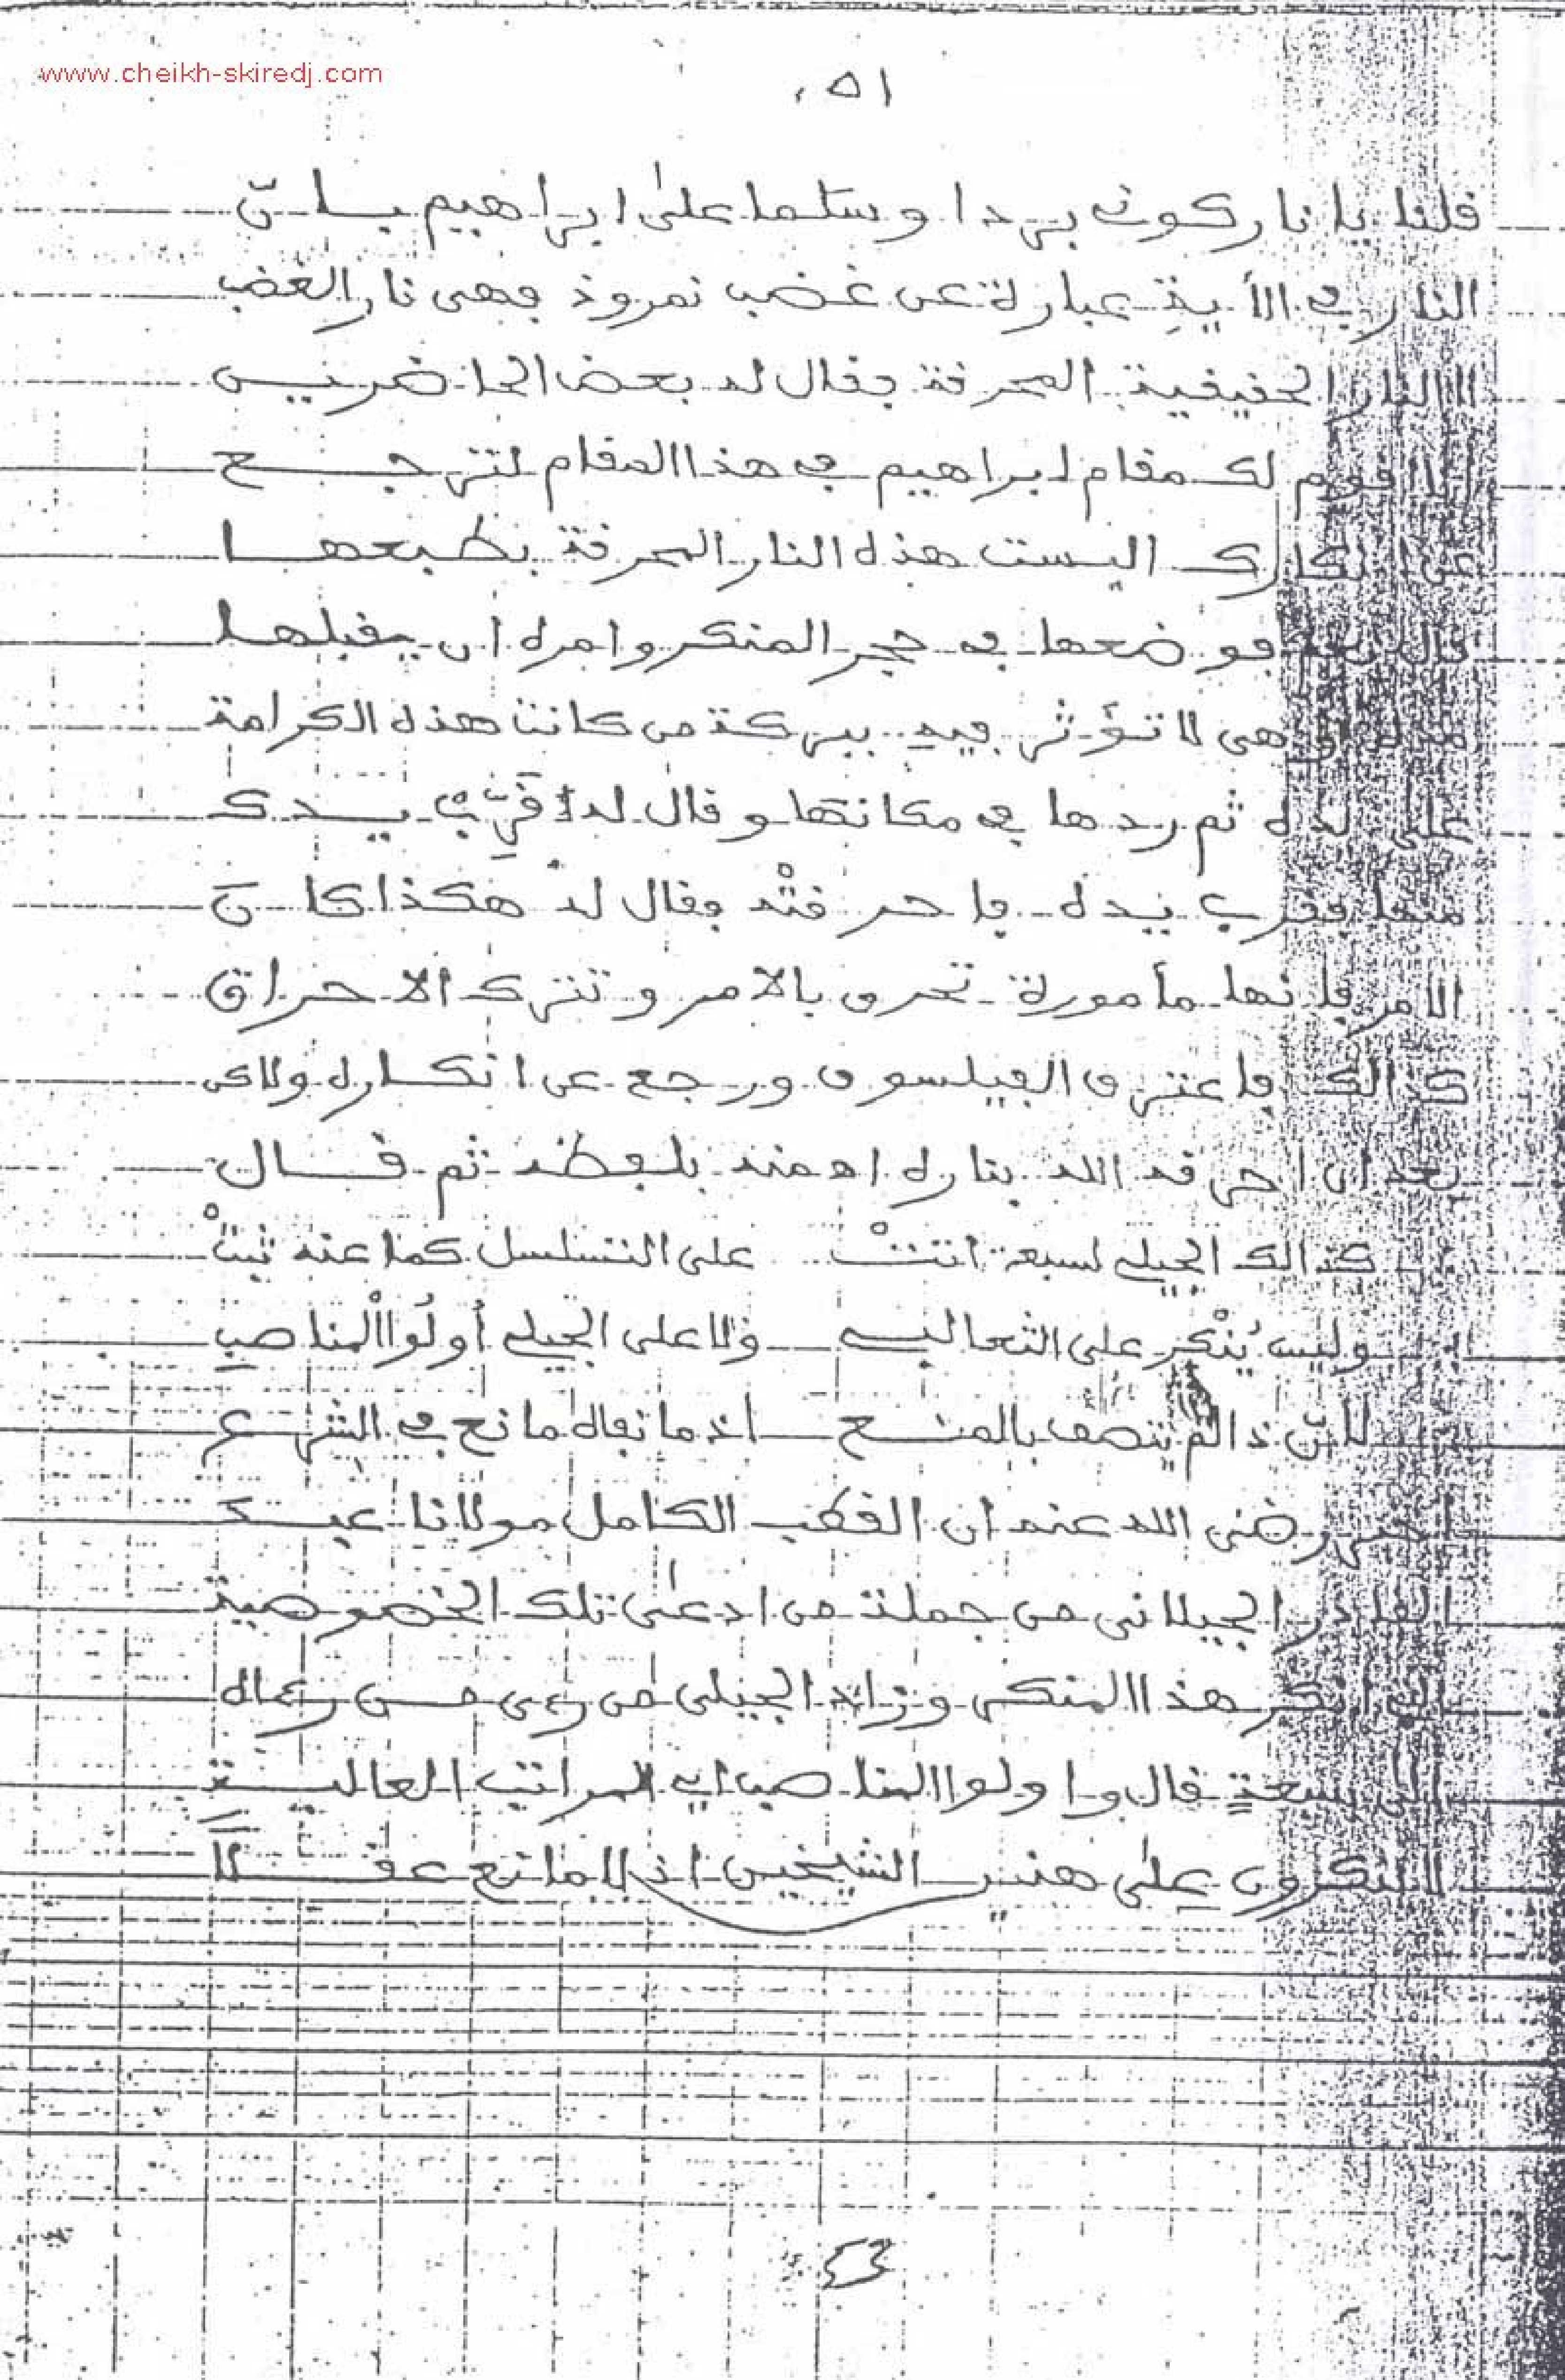 www.cheikh-skiredj.com
١٥١
قلنا يا نار كوني بردا وسلما على ابراهيم بأنّ
النار في الأية عبارة عن غضب نمروذ فهي نار الغضب
لا النار الحقيقية المحرقة فقال له بعض الحاضرين
انا اقوم لك مقام ابراهيم في هذا المقام لترجع
عن انكارك اليست هذه النار المحرقة بطبعها
قال نعم فوضعها في حجر المنكر وامره ان يقبلها
وهي لا تؤثر فيه ببركة من كانت هذه الكرامة
على يده ثم ردها في مكانها وقال له قَرِّبْ يدك
منها فقرب يده فاحرقتْه فقال له هكذا كان
الامر فانها مأمورة تحرق بالامر وتترك الاحراق
كذالك فاعترف الفيلسوف ورجع عن انكاره ولاكن
بعد ان احرقه الله بناره اه منه بلفظه ثم قال
كذالك الجيلي لسبعة انتتْ على التسلسل كما عنه ثبتْ
وليس يُنْكِر على الثعالبي ولا على الجيلي أولُوا المناصبِ
لأنّ ذا لم يتصف بالمنع اذ ما نفاه مانع في الشرع
اخبر رضي الله عنه ان القطب الكامل مولانا عبد
القادر الجيلاني من جملة من ادعى تلك الخصوصية
التي انكر هذا المنكر وزاد الجيلي من رءى من رءاه
الى سبعةٍ قال واولوا المناصب اي المراتب العالية
لا ينكرون على هذين الشيخين اذ لا مانع عقلاً